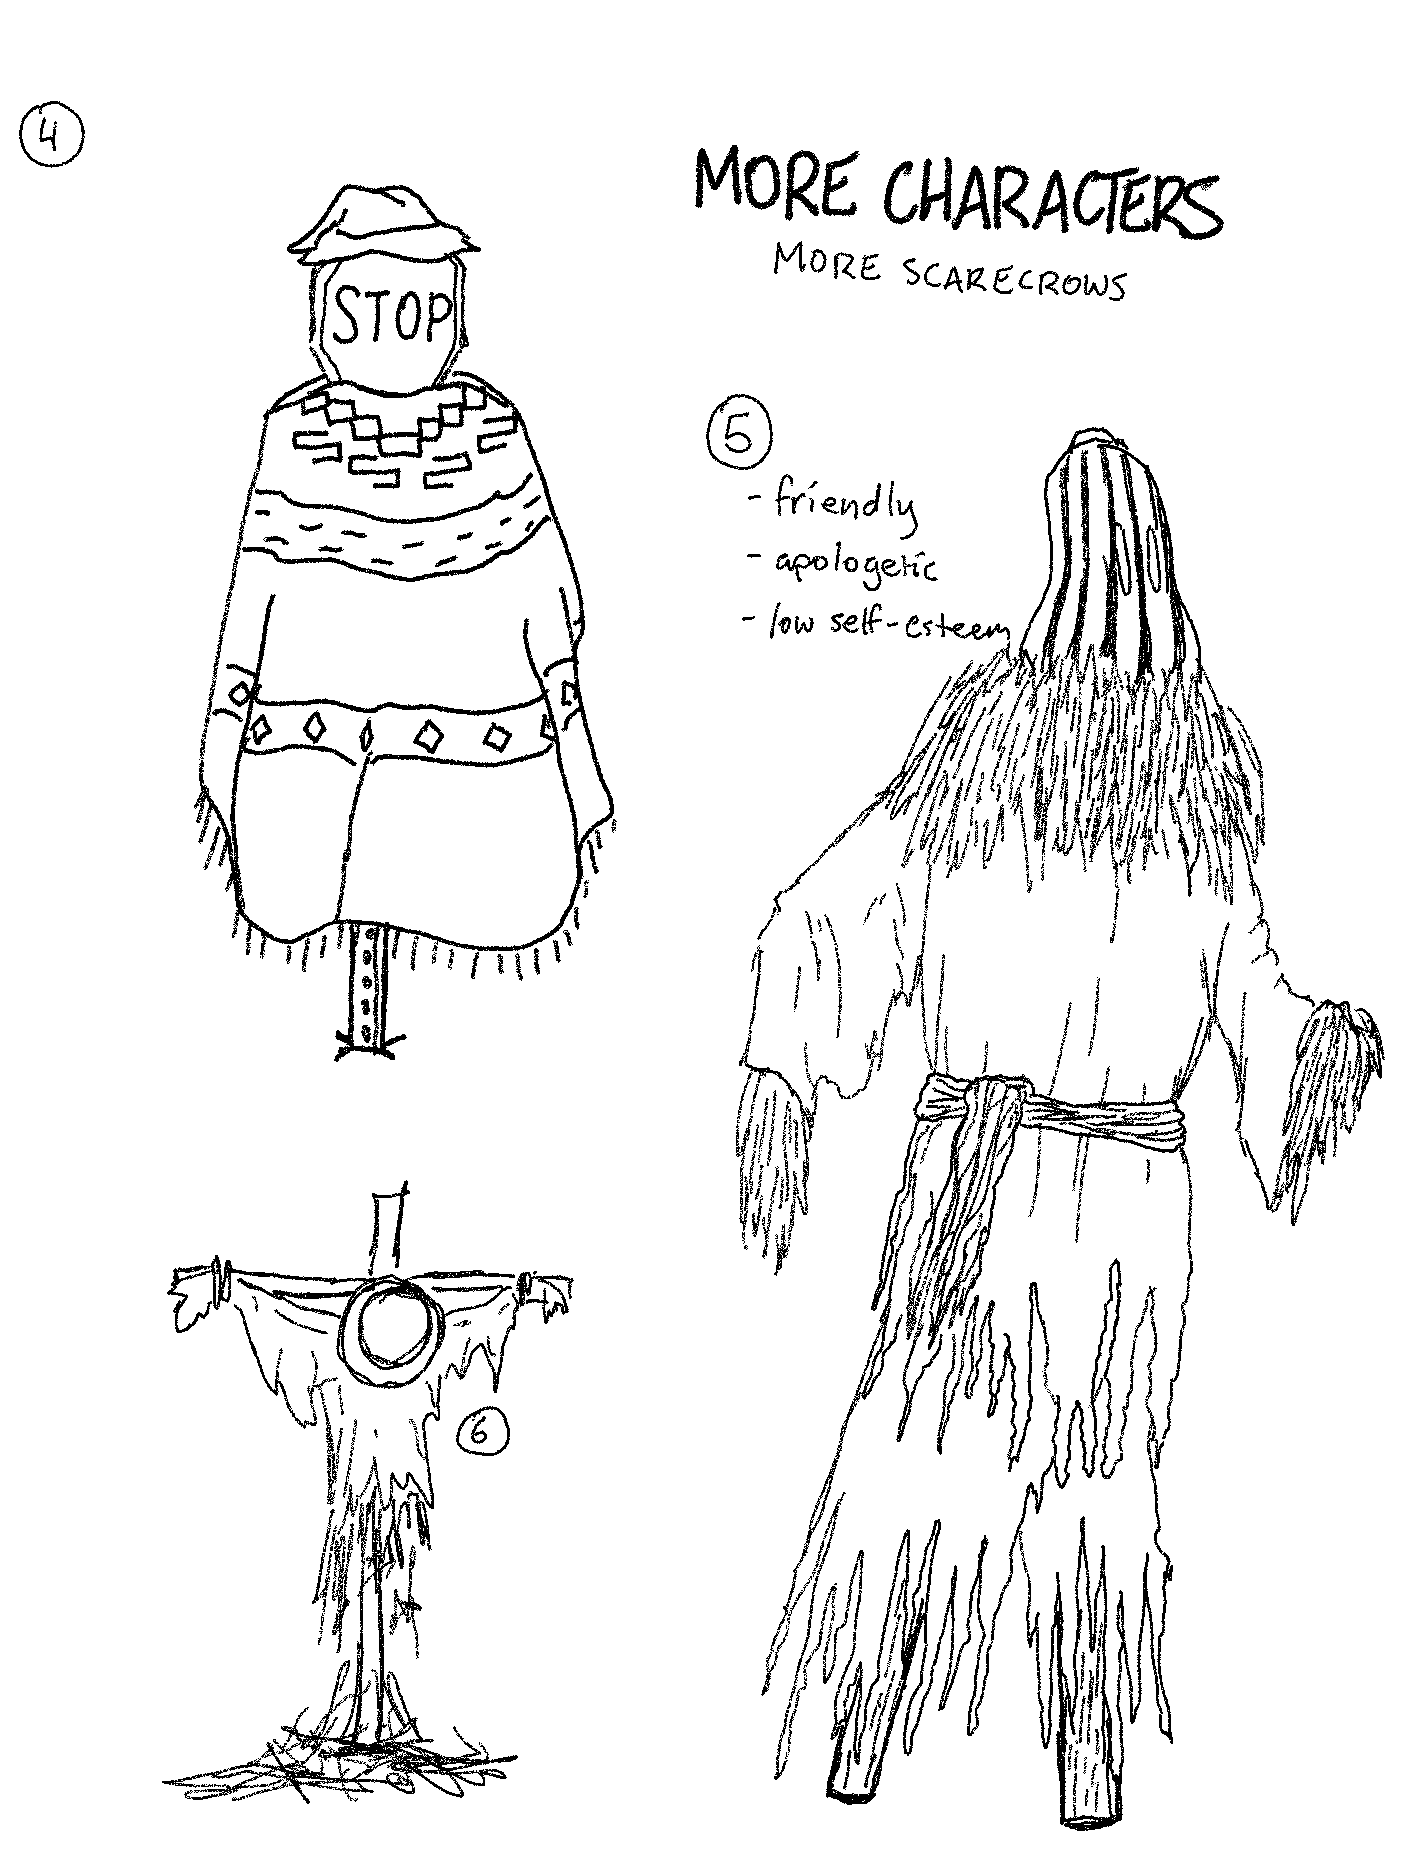 4
MORE CHARACTERS
MORE SCARECROWS
STOP
5
- friendly
- apologetic
- low self-esteem
6